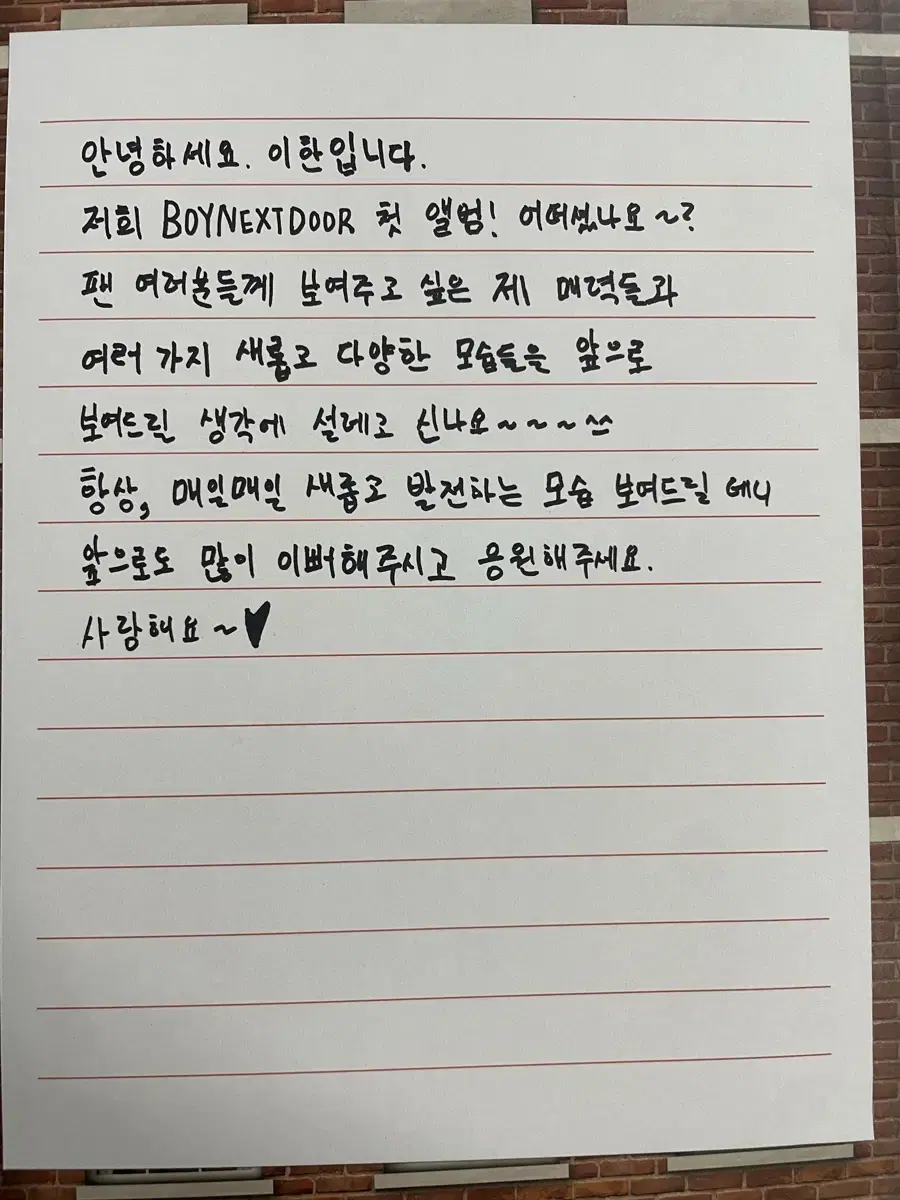 안녕하세요. 이한입니다.
저희 BOYNEXTDOOR 첫 앨범! 어떠셨나요~?
팬 여러분들께 보여주고 싶은 제 매력들과
여러 가지 새롭고 다양한 모습들을 앞으로
보여드릴 생각에 설레고 신나요~~~ ^^
항상, 매일매일 새롭고 발전하는 모습 보여드릴 테니
앞으로도 많이 이뻐해주시고 응원해주세요.
사랑해요~♥